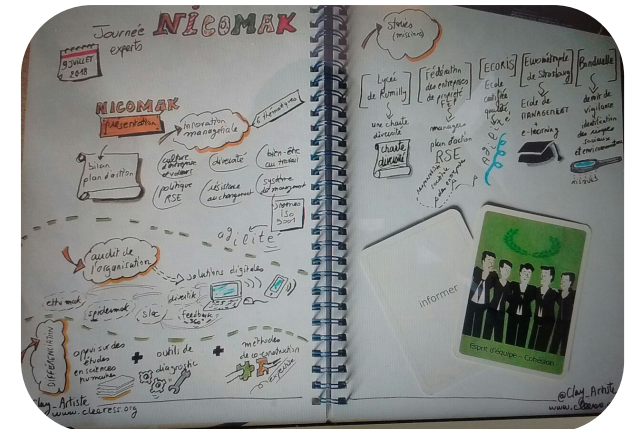 Journée
experts
NICOMAK
9 JUILLET
2018
NICOMAK
présentation
innovation
managériale
6 thématiques
bilan
plan d'action
culture
d'entreprise
et valeurs
diversité
bien-être
au travail
politique
RSE
résistance
au changement
système
de management
ISO
9001
agilité
audit de
l'organisation
solutions digitales
ethimak
spidermak
slac
diversitik
feedback
360°
DIFFÉRENCIATION
appui sur des
études
en sciences
humaines
+
outils de
diagnostic
+
méthodes
de co-construction
expertise
Clay_Artiste
www.clearess.org
stories
(missions)
Lycée
de Rumilly
une charte
diversité
charte
diversité
Fédération
des entreprises
de propreté
FEP
managers
plan d'action
RSE
ECORIS
Ecole
certifiée
qualité
agilité
Eurométropole
de Strasbourg
Ecole de
MANAGEMENT
e-learning
Bonduelle
devoir de
vigilance
identification
des risques
sociaux
et environnementaux
informer
Esprit d'équipe - Cohésion
@Clay_Artiste